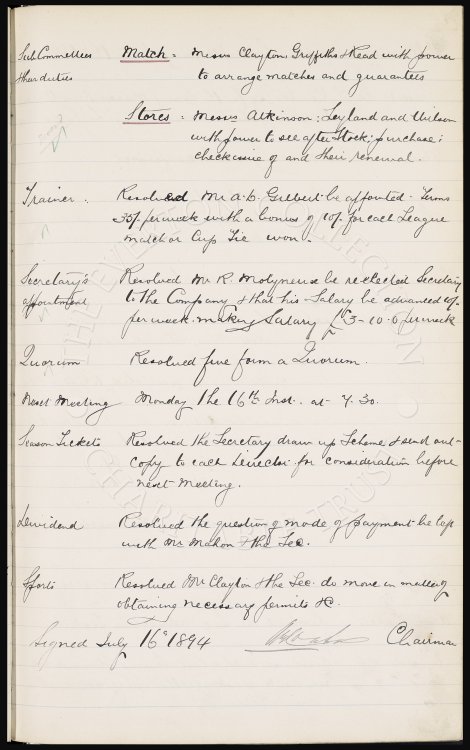 SubCommittees Match : Messrs Clayton, Griffiths & Read with power
& their duties to arrange matches and guarantees
Stores : Messrs Atkinson: Leyland and Wilson
with power to see after Stock; purchase;
check issue of and their renewal.
Trainer. Resolved Mr A. D. Gilbert be appointed. Terms
35/- per week with a bonus of 10/- for each League
match or Cup Tie won.
Secretary's Resolved Mr R. Molyneux be re-elected Secretary
appointment to the Company & that his Salary be advanced
per week making Salary £3-10-0 per week
Quorum Resolved five form a Quorum.
Next Meeting Monday the 16th Inst. at 7.30.
Season Tickets Resolved the Secretary draw up Scheme & send out
Copy to each Director for consideration before
next Meeting.
Dividend Resolved the question of mode of payment be left
with Mr Mahon & the Sec.
Sports Resolved Mr Clayton & the Sec. do move in matter of
obtaining necessary permits &c.
Signed July 16th 1894 Chairman
THE EVERTON COLLECTION
CHARITABLE TRUST